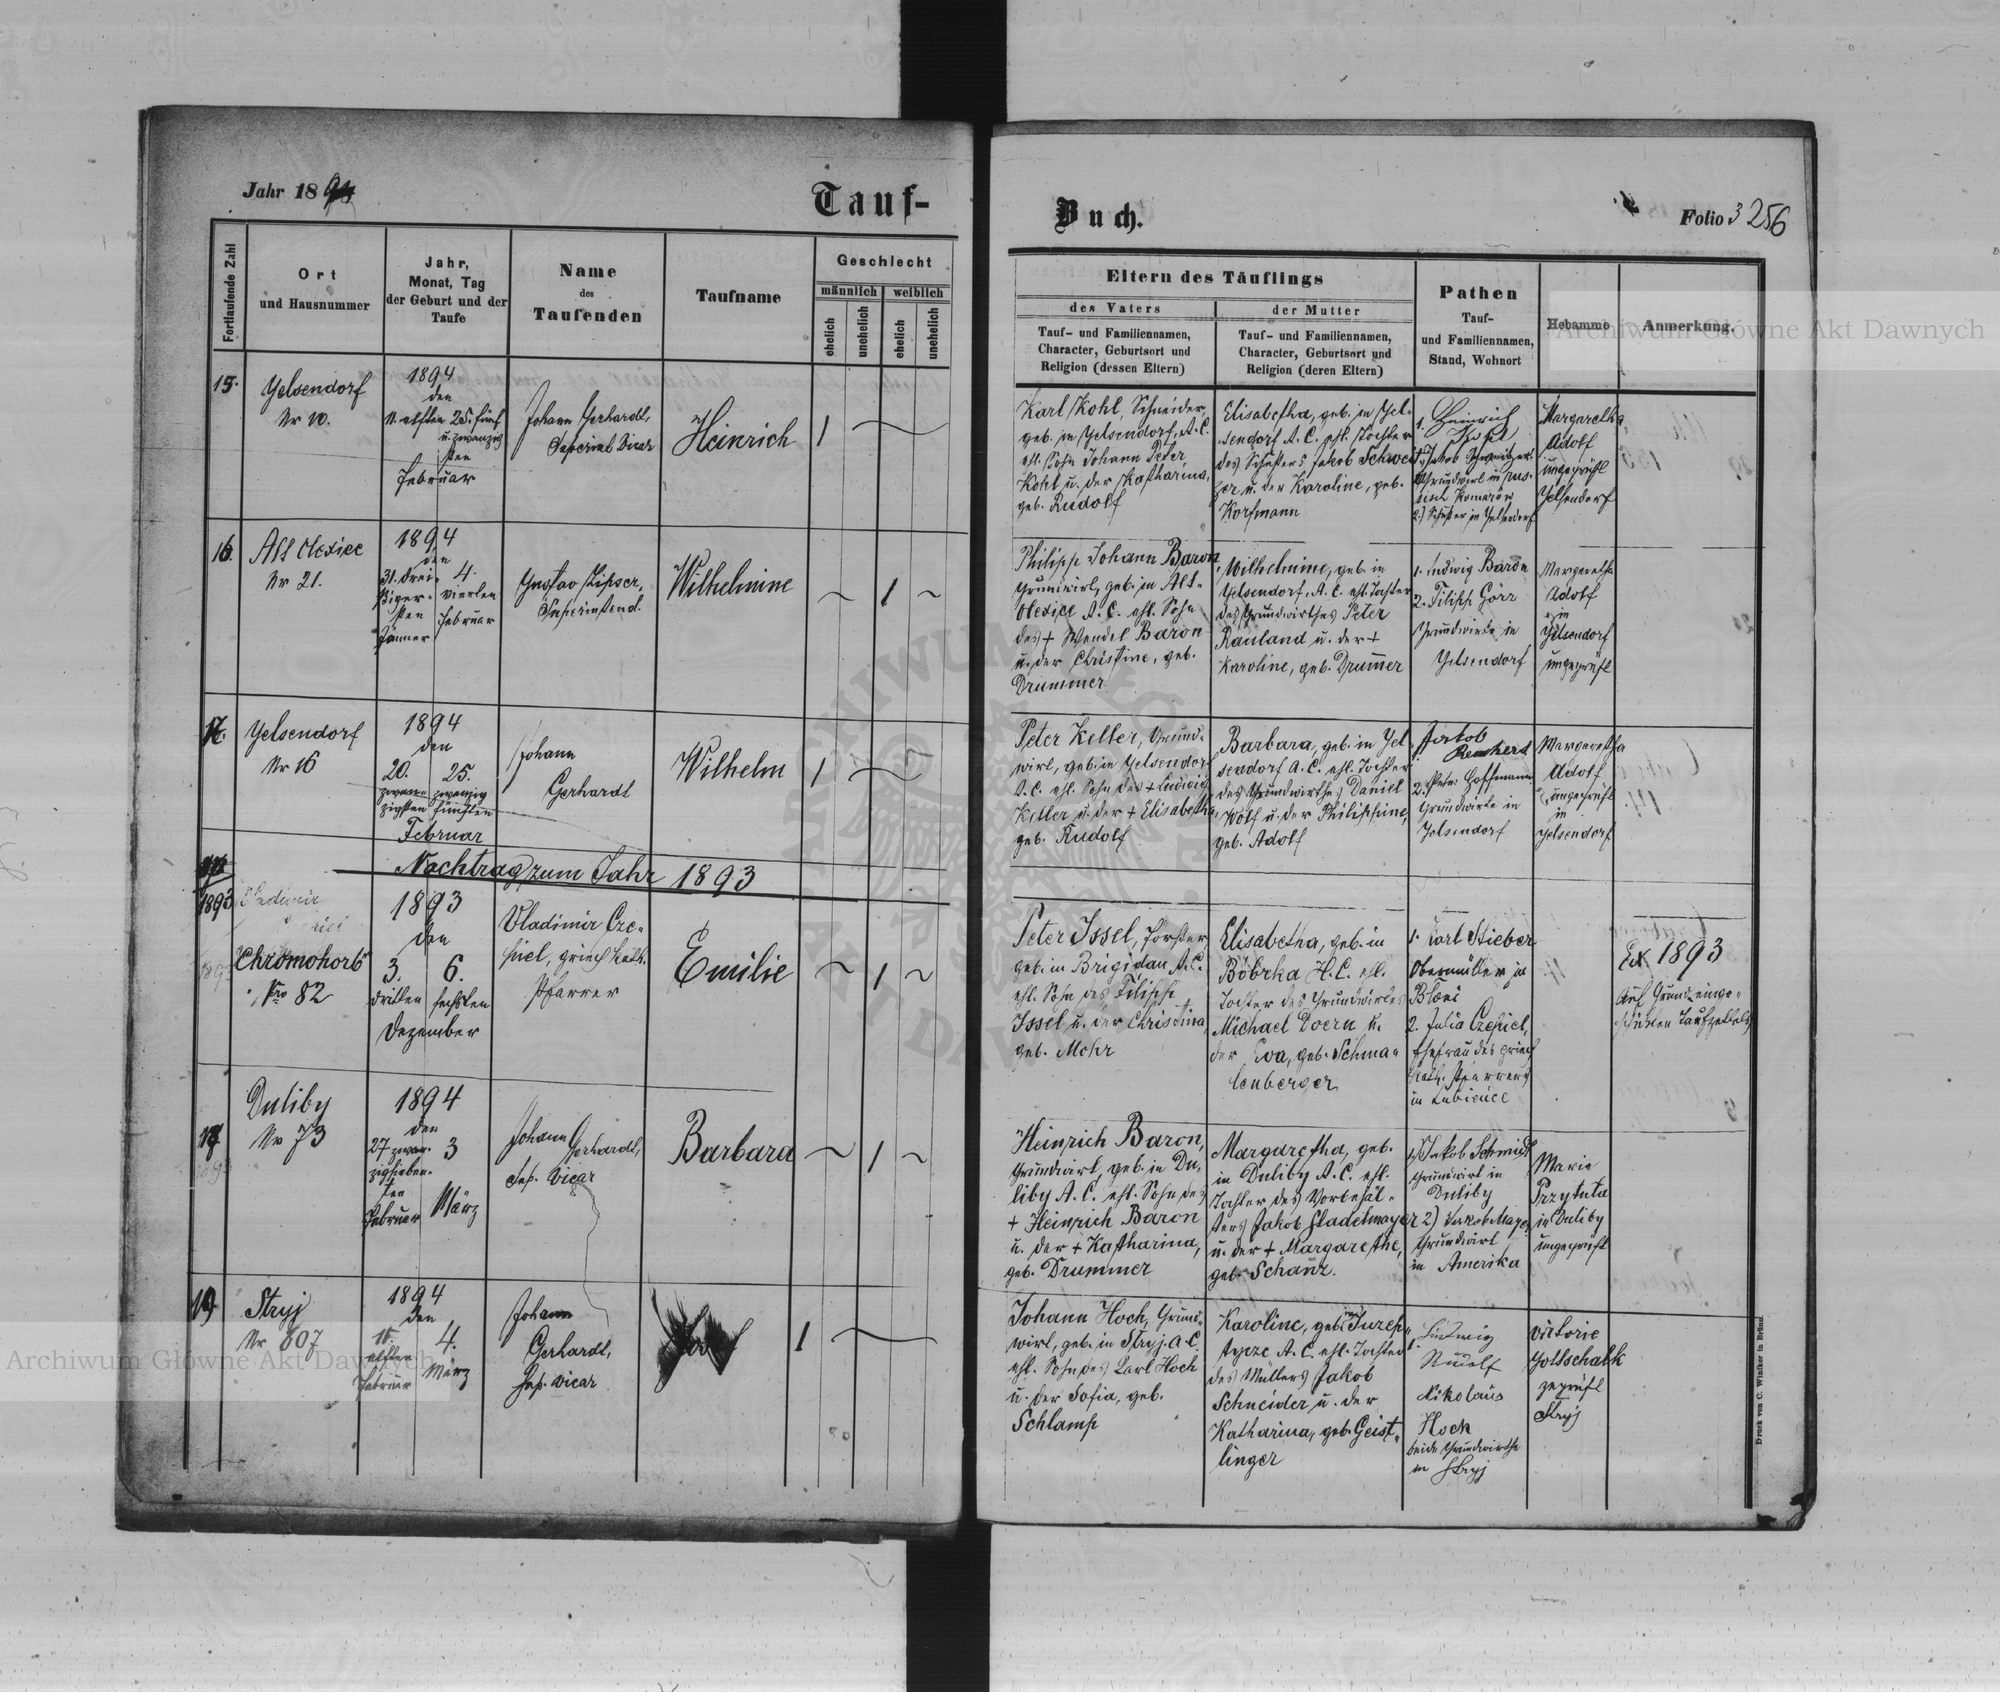 Jahr 1894
Tauf-
Buch.
Folio 3 256
Fortlaufende Zahl
Ort
und Hausnummer
Jahr,
Monat, Tag
der Geburt und der
Taufe
Name
des
Taufenden
Taufname
Geschlecht
männlich weiblich
ehelich
unehelich
ehelich
unehelich
Eltern des Täuflings
des Vaters
der Mutter
Tauf- und Familiennamen,
Character, Geburtsort und
Religion (dessen Eltern)
Tauf- und Familiennamen,
Character, Geburtsort und
Religion (deren Eltern)
Pathen
Tauf-
und Familiennamen,
Stand, Wohnort
Hebamme
Anmerkung.
15.
Gelsendorf
Nr 10.
1894
den
11. elften 25. fünf
u. zwanzig
sten
Februar
Johann Gerhardt,
Superint Vicar
Heinrich
1
Karl Kohl, Schneider,
geb. in Gelsendorf, A.C.
ehl. Sohn Johann Peter
Kohl u. der Katharina,
geb. Rudolf
Elisabetha, geb. in Gel-
sendorf A. C. ehl. Tochter
des Schusters Jakob Schweit
zer u. der Karoline, geb.
Korfmann
1. Heinrich
Jakob
Grundwirt in
2.) Schuster in Gelsendorf
Margaretha
Adolf
ungeprüft
Gelsendorf
16.
Alt Olexice
Nr 21.
1894
den
31. drei- 4.
ßiger- vierten
sten Februar
Jänner
Gustav Zipser,
Superintend.
Wilhelmine
1
Philipp Johann Baron,
Grundwirt, geb. in Alt-
Olexice A. C. ehl. Sohn
des + Wendel Baron
u. der Christine, geb.
Drummer
Wilhelmine, geb. in
Gelsendorf, A. C. ehl. Tochter
des Grundwirthes Peter
Rauland u. der +
Karoline, geb. Drummer
1. Ludwig Baron
2. Filipp Görz
Grundwirte in
Gelsendorf
Margaretha
Adolf
in
Gelsendorf
ungeprüft
17.
Gelsendorf
Nr 16
1894
den
20. 25.
zwan- zwanzig
zigsten fünften
Februar
Johann
Gerhardt
Wilhelm
1
Peter Keller, Grund-
wirt, geb. in Gelsendorf
A. C. ehl. Sohn des + Ludwig
Keller u. der + Elisabetha,
geb. Rudolf
Barbara, geb. in Gel
sendorf A. C. ehl. Tochter
des Grundwirthes Daniel
Wolf u. der Philippine,
geb. Adolf
Jakob
2. Peter Hoffmann
Grundwirte in
Gelsendorf
Margaretha
Adolf
ungeprüft
in
Gelsendorf
Nachtrag zum Jahr 1893
1893
Chromohorb
Nro 82
1893
den
3. 6.
dritten sechsten
Dezember
Vladimir Cze-
hiel, griech kath.
Pfarrer
Emilie
1
Peter Issel, Förster
geb. in Brigidau A. C.
ehl. Sohn des Filipp
Issel u. der Christina,
geb. Mohr
Elisabetha, geb. in
Böbrka H. C. ehl.
Tochter des Grundwirtes
Michael Doern u.
der Eva, geb. Schma-
lenberger
1. Karl Stieber
Obermüller in
2. Julia Czehiel,
Ehefrau des griech
kath. Pfarrers
in Lubience
Ex 1893
Auf Grund einge-
schickten Taufzettels
Duliby
Nr 73
1894
den
27 zwan- 3
zigsieben-
ten
Februar März
Johann Gerhardt,
Sup. Vicar
Barbara
1
Heinrich Baron,
Grundwirt, geb. in Du-
liby A. C. ehl. Sohn des
+ Heinrich Baron
u. der + Katharina,
geb. Drummer
Margaretha, geb.
in Duliby A. C. ehl.
Tochter des Vorbehäl-
ters Jakob Stadelmayer
u. der + Margarethe,
geb. Schanz.
1) Jakob Schmidt
Grundwirt in
Duliby
2) Jakob Mayer
Grundwirt
in Amerika
Marie
Przytuła
in Duliby
ungeprüft
19
Stryj
Nr 607
1894
den
11. 4.
elften März
Februar
Johann
Gerhardt,
Sup. Vicar
1
Johann Hoch, Grund-
wirt, geb. in Stryj. A. C.
ehl. Sohn des Carl Hoch
u. der Sofia, geb.
Schlamp
Karoline, geb. in Juzep-
tycze A. C. ehl. Tochter
des Müllers Jakob
Schneider u. der
Katharina, geb. Geist-
linger
Ludwig
Rudolf
Nikolaus
Hock
beide Grundwirthe
in Stryj
Victorie
Gottschalk
geprüft
Stryj
Druck von C. Winiker in Brünn
Archiwum Główne Akt Dawnych
Archiwum Główne Akt Dawnych